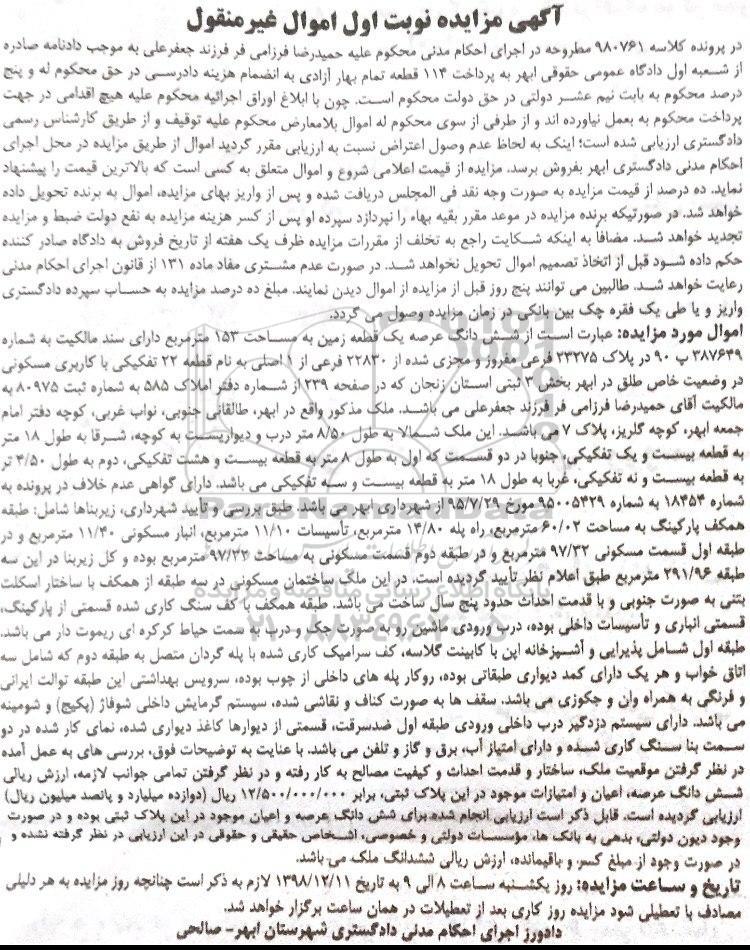 آگهی مزایده نوبت اول اموال غیرمنقول
در پرونده کلاسه ۹۸۰۷۶۱ مطروحه در اجرای احکام مدنی محکوم علیه حمیدرضا فرزامی فر فرزند جعفرعلی به موجب دادنامه صادره
از شعبه اول دادگاه عمومی حقوقی ابهر به پرداخت ۱۱۴ قطعه تمام بهار آزادی به انضمام هزینه دادرسی در حق محکوم له و پنج
درصد محکوم به بابت نیم عشر دولتی در حق دولت محکوم است. چون با ابلاغ اوراق اجرائیه محکوم علیه هیچ اقدامی در جهت
پرداخت محکوم به بعمل نیاورده اند و از طرفی از سوی محکوم له اموال بلامعارض محکوم علیه توقیف و از طریق کارشناس رسمی
دادگستری ارزیابی شده است؛ اینک به لحاظ عدم وصول اعتراض نسبت به ارزیابی مقرر گردید اموال از طریق مزایده در محل اجرای
احکام مدنی دادگستری ابهر بفروش برسد. مزایده از قیمت اعلامی شروع و اموال متعلق به کسی است که بالاترین قیمت را پیشنهاد
نماید. ده درصد از قیمت مزایده به صورت وجه نقد فی المجلس دریافت شده و پس از واریز بهای مزایده، اموال به برنده تحویل داده
خواهد شد. در صورتیکه برنده مزایده در موعد مقرر بقیه بهاء را نپردازد سپرده او پس از کسر هزینه مزایده به نفع دولت ضبط و مزایده
تجدید خواهد شد. مضافاً به اینکه شکایت راجع به تخلف از مقررات مزایده ظرف یک هفته از تاریخ فروش به دادگاه صادر کننده
حکم داده شود قبل از اتخاذ تصمیم اموال تحویل نخواهد شد. در صورت عدم مشتری مفاد ماده ۱۳۱ از قانون اجرای احکام مدنی
رعایت خواهد شد. طالبین می توانند پنج روز قبل از مزایده از اموال دیدن نمایند. مبلغ ده درصد مزایده به حساب سپرده دادگستری
واریز و یا طی یک فقره چک بین بانکی در زمان مزایده وصول می گردد.
اموال مورد مزایده: عبارت است از شش دانگ عرصه یک قطعه زمین به مساحت ۱۵۳ مترمربع دارای سند مالکیت به شماره
۳۸۷۶۴۹ پ ۹۰ در پلاک ۲۳۲۷۵ فرعی مفروز و مجزی شده از ۲۲۸۳۰ فرعی از ۱ اصلی به نام قطعه ۲۲ تفکیکی با کاربری مسکونی
در وضعیت خاص طلق در ابهر بخش ۳ ثبتی استان زنجان که در صفحه ۲۳۹ از شماره دفتر املاک ۵۸۵ به شماره ثبت ۸۰۹۷۵ به
مالکیت آقای حمیدرضا فرزامی فر فرزند جعفرعلی می باشد. ملک مذکور واقع در ابهر، طالقانی جنوبی، نواب غربی، کوچه دفتر امام
جمعه ابهر، کوچه گلریز، پلاک ۷ می باشد. این ملک شمالا به طول ۸/۵۰ متر درب و دیواریست به کوچه، شرقا به طول ۱۸ متر
به قطعه بیست و یک تفکیکی، جنوبا در دو قسمت که اول به طول ۸ متر به قطعه بیست و هشت تفکیکی، دوم به طول ۴/۵۰ تر
به قطعه بیست و نه تفکیکی، غربا به طول ۱۸ متر به قطعه بیست و سه تفکیکی می باشد. دارای گواهی عدم خلاف در پرونده به
شماره ۱۸۴۵۴ به شماره ۹۵۰۰۵۴۲۹ مورخ ۹۵/۷/۲۹ از شهرداری ابهر می باشد. طبق بررسی و تأیید شهرداری، زیربناها شامل: طبقه
همکف پارکینگ به مساحت ۶۰/۰۲ مترمربع، راه پله ۱۴/۸۰ مترمربع، تأسیسات ۱۱/۱۰ مترمربع، انبار مسکونی ۱۱/۴۰ مترمربع و در
طبقه اول قسمت مسکونی ۹۷/۳۲ مترمربع و در طبقه دوم قسمت مسکونی به مساحت ۹۷/۳۲ مترمربع بوده و کل زیربنا در این سه
طبقه ۲۹۱/۹۶ مترمربع طبق اعلام نظر تأیید گردیده است. در این ملک ساختمان مسکونی در سه طبقه از همکف با ساختار اسکلت
بتنی به صورت جنوبی و با قدمت احداث حدود پنج سال ساخت می باشد. طبقه همکف با کف سنگ کاری شده قسمتی از پارکینگ،
قسمتی انباری و تأسیسات داخلی بوده، درب ورودی ماشین رو به صورت جک و درب به سمت حیاط کرکره ای ریموت دار می باشد.
طبقه اول شامل پذیرایی و آشپزخانه اپن با کابینت گلاسه، کف سرامیک کاری شده با پله گردان متصل به طبقه دوم که شامل سه
اتاق خواب و هر یک دارای کمد دیواری طبقاتی بوده، روکار پله های داخلی از چوب بوده، سرویس بهداشتی این طبقه توالت ایرانی
و فرنگی به همراه وان و جکوزی می باشد. سقف ها به صورت کناف و نقاشی شده، سیستم گرمایش داخلی شوفاژ (پکیج) و شومینه
می باشد. دارای سیستم دزدگیر درب داخلی ورودی طبقه اول ضدسرقت، قسمتی از دیوارها کاغذ دیواری شده، نمای کار شده در دو
سمت بنا سنگ کاری شده و دارای امتیاز آب، برق و گاز و تلفن می باشد. با عنایت به توضیحات فوق، بررسی های به عمل آمده
در نظر گرفتن موقعیت ملک، ساختار و قدمت احداث و کیفیت مصالح به کار رفته و در نظر گرفتن تمامی جوانب لازمه، ارزش ریالی
شش دانگ عرصه، اعیان و امتیازات موجود در این پلاک ثبتی، برابر ۱۲/۵۰۰/۰۰۰/۰۰۰ ریال (دوازده میلیارد و پانصد میلیون ریال)
ارزیابی گردیده است. قابل ذکر است ارزیابی انجام شده برای شش دانگ عرصه و اعیان موجود در این پلاک ثبتی بوده و در صورت
وجود دیون دولتی، بدهی به بانک ها، مؤسسات دولتی و خصوصی، اشخاص حقیقی و حقوقی در این ارزیابی در نظر گرفته نشده و
در صورت وجود از مبلغ کسر و باقیمانده، ارزش ریالی ششدانگ ملک می باشد.
تاریخ و ساعت مزایده: روز یکشنبه ساعت ۸ الی ۹ به تاریخ ۱۳۹۸/۱۲/۱۱ لازم به ذکر است چنانچه روز مزایده به هر دلیلی
مصادف با تعطیلی شود مزایده روز کاری بعد از تعطیلات در همان ساعت برگزار خواهد شد.
دادورز اجرای احکام مدنی دادگستری شهرستان ابهر- صالحی